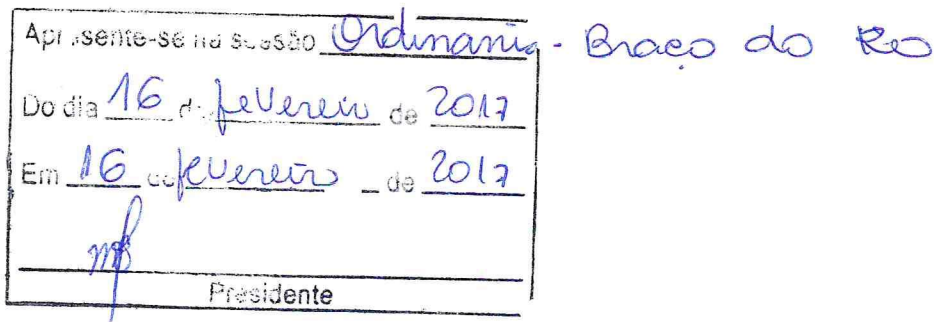 Apresente-se na sessão Ordinária - Braço do Rio
Do dia 16 de fevereiro de 2017
Em 16 de fevereiro de 2017
Presidente